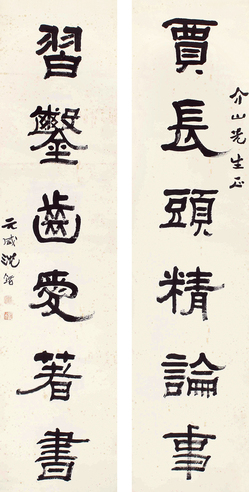 介山先生正
賈長頭精論事
習鑿齒愛著書
元咸沈